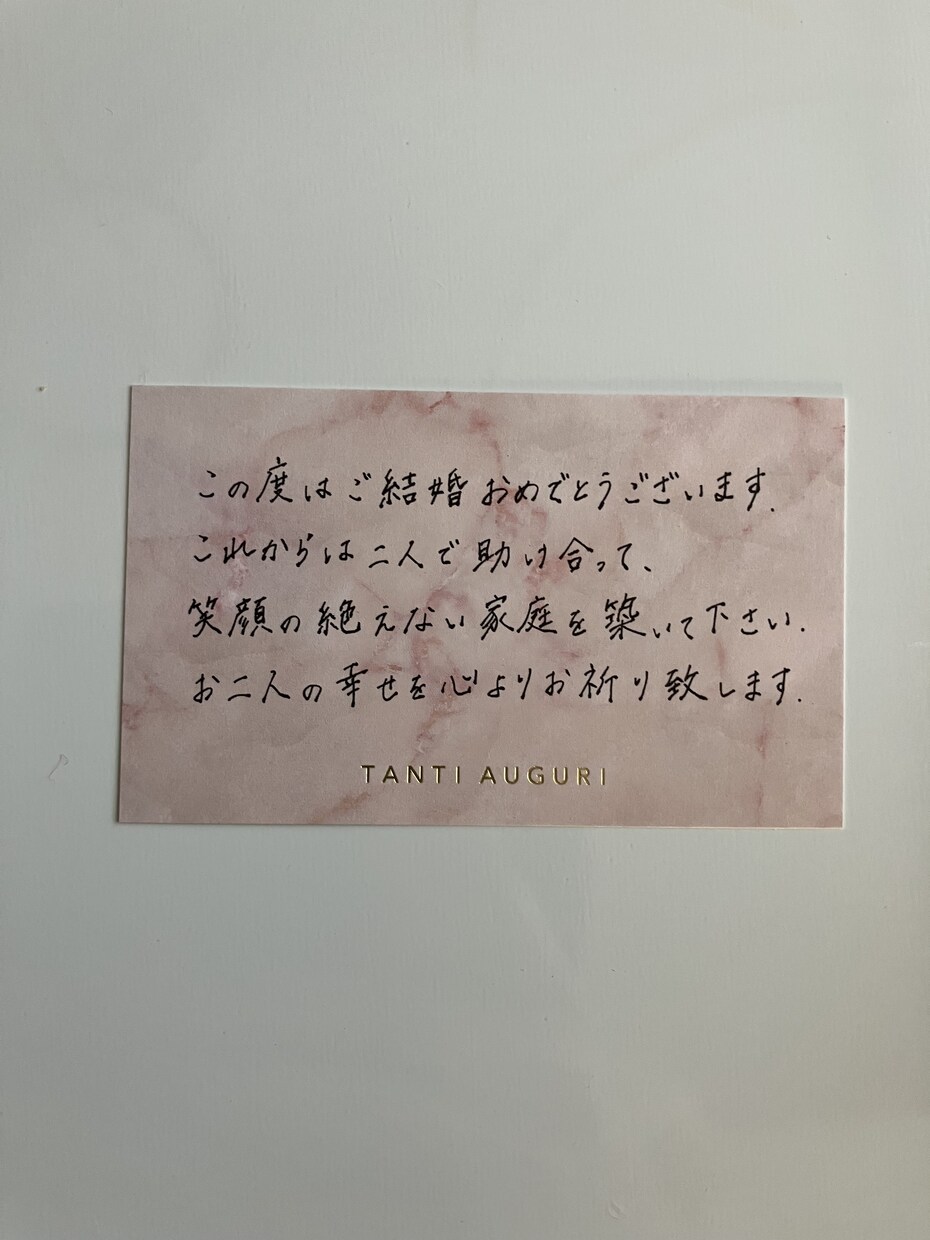 この度はご結婚おめでとうございます.
これからは二人で助け合って、
笑顔の絶えない家庭を築いて下さい.
お二人の幸せを心よりお祈り致します.
TANTI AUGURI